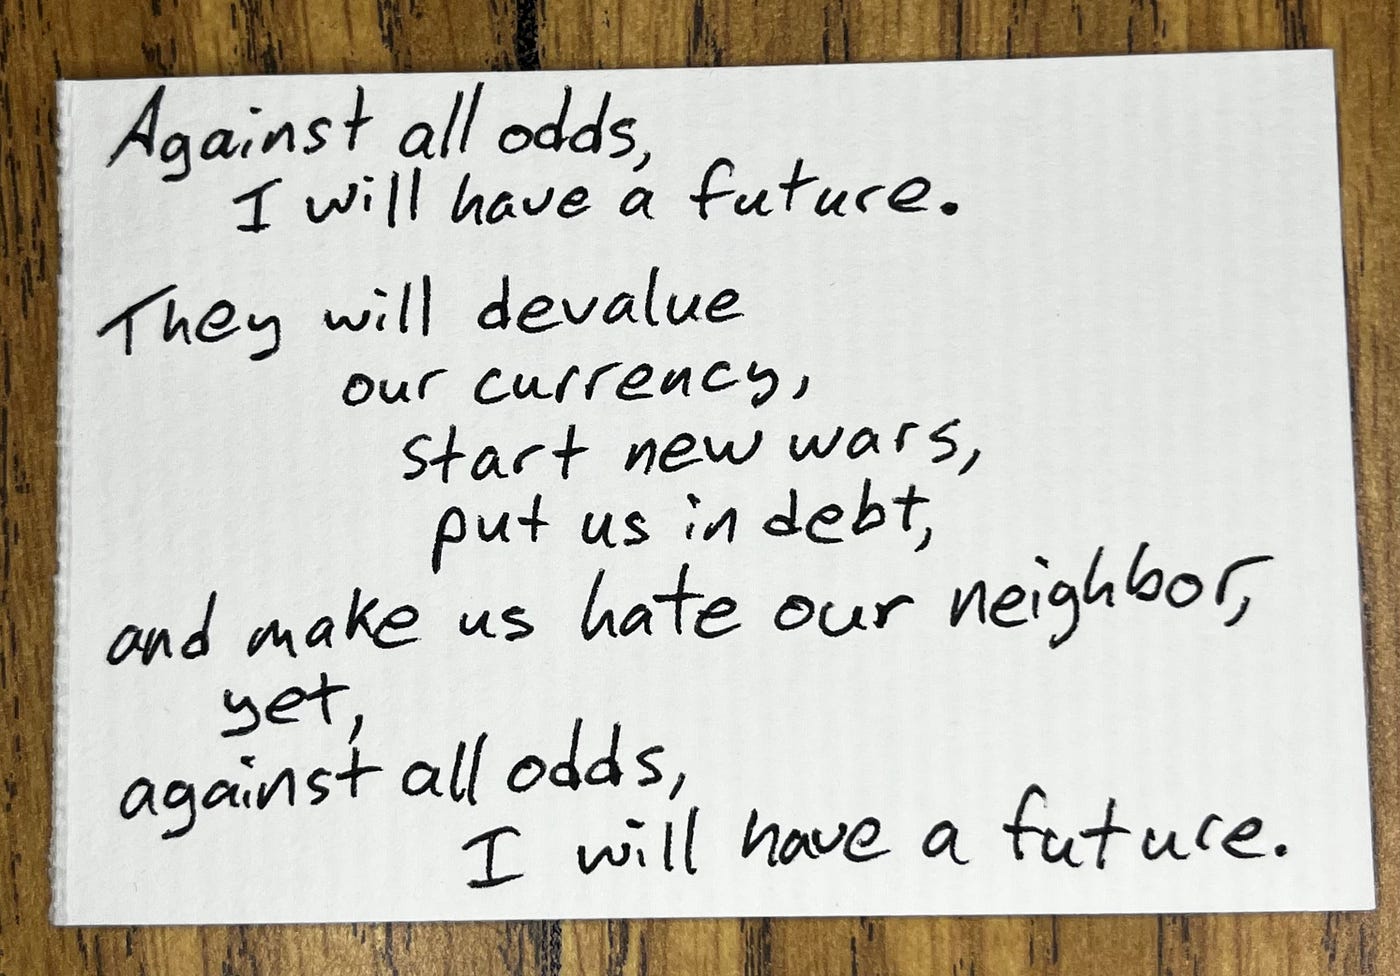 Against all odds,
I will have a future.
They will devalue
our currency,
start new wars,
put us in debt,
and make us hate our neighbor,
yet,
against all odds,
I will have a future.